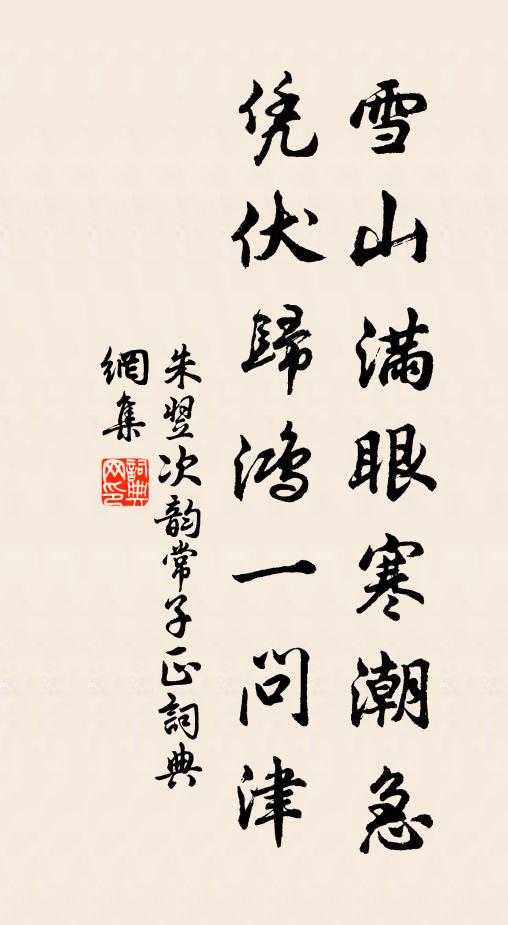 雪山满眼寒潮急
凭伏歸鸿一问津
朱翌次韵常子正詞典
網集
詞典网印